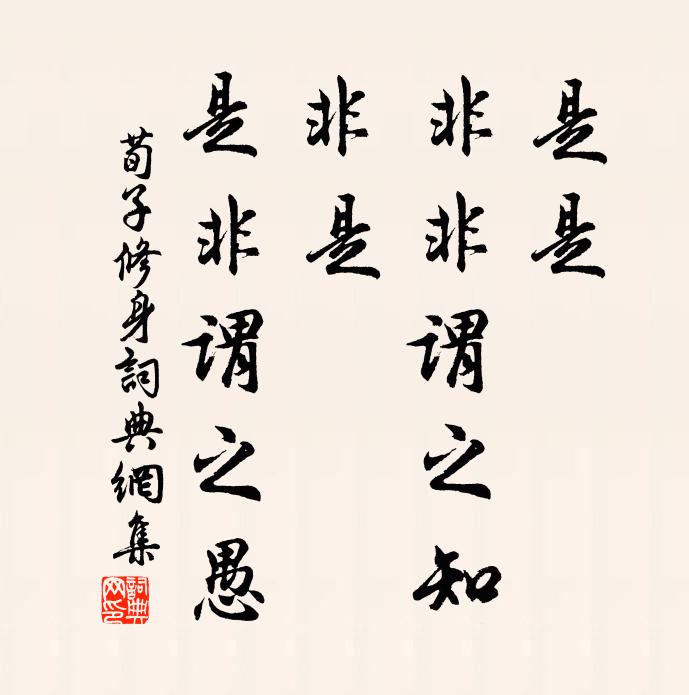 是是
非非謂之知
非是
是非謂之愚
荀子修身詞典網集
詞典網印